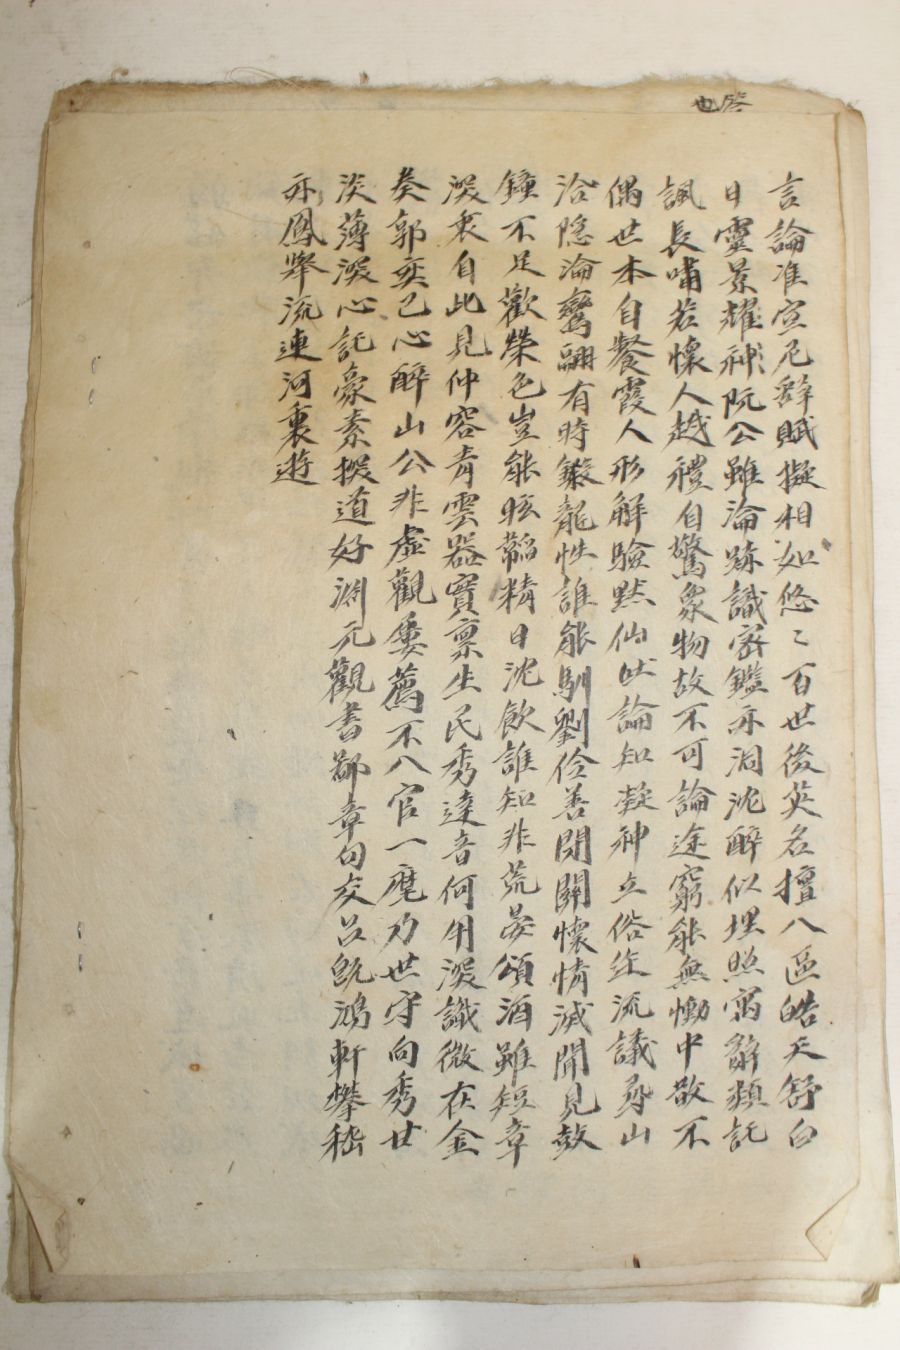 言論准宣尼辭賦擬相如悠〻百世後英名擅八區皓天舒白
日靈景耀神阮公雖淪跡識密鑑亦洞沈醉似埋照寓辭類託
諷長嘯若懷人越禮自驚衆物故不可論途窮能無慟中散不
偶世本自餐霞人形解驗默仙吐論知凝神立俗迕流議尋山
洽隱淪鸞翮有時鎩龍性誰能馴劉伶善閉關懷情滅聞見鼓
鐘不足歡榮色豈能眩韜精日沈飲誰知非荒宴頌酒雖短章
深衷自此見仲容靑雲器實禀生民秀達音何用深識微在金
奏郭奕已心醉山公非虛觀屢薦不入官一麾乃出守向秀甘
淡薄深心託豪素探道好淵元觀書鄙章句交呂旣鴻軒攀嵇
亦鳳擧流連河裏遊